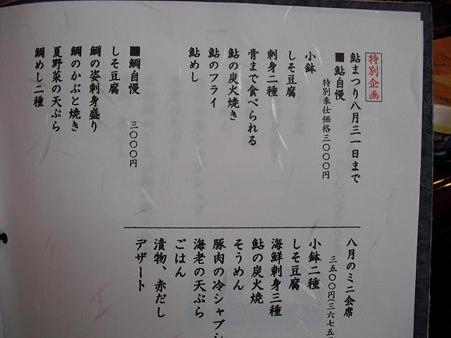 特別企画
鮎まつり八月三一日まで
■鮎自慢
特別奉仕価格三〇〇〇円
小鉢
しそ豆腐
刺身二種
骨まで食べられる
鮎の炭火焼き
鮎のフライ
鮎めし
■鯛自慢
三〇〇〇円
しそ豆腐
鯛の姿刺身盛り
鯛のかぶと焼き
夏野菜の天ぷら
鯛めし二種
八月のミニ会席
三五〇〇円(三六七五
小鉢二種
しそ豆腐
海鮮刺身三種
鮎の炭火焼
そうめん
豚肉の冷シャブシ
海老の天ぷら
ごはん
漬物、赤だし
デザート